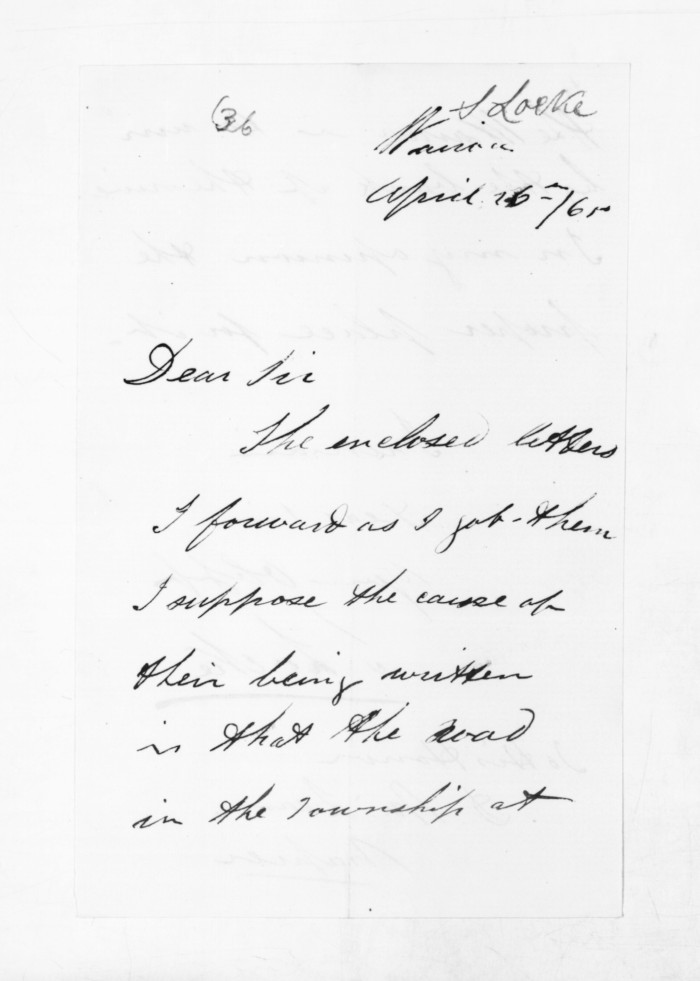 36
S. Locke
Wairoa
April 26th /65
Dear Sir
The enclosed letters
I forward as I got them
I suppose the cause of
their being written
is that the road
in the Township at